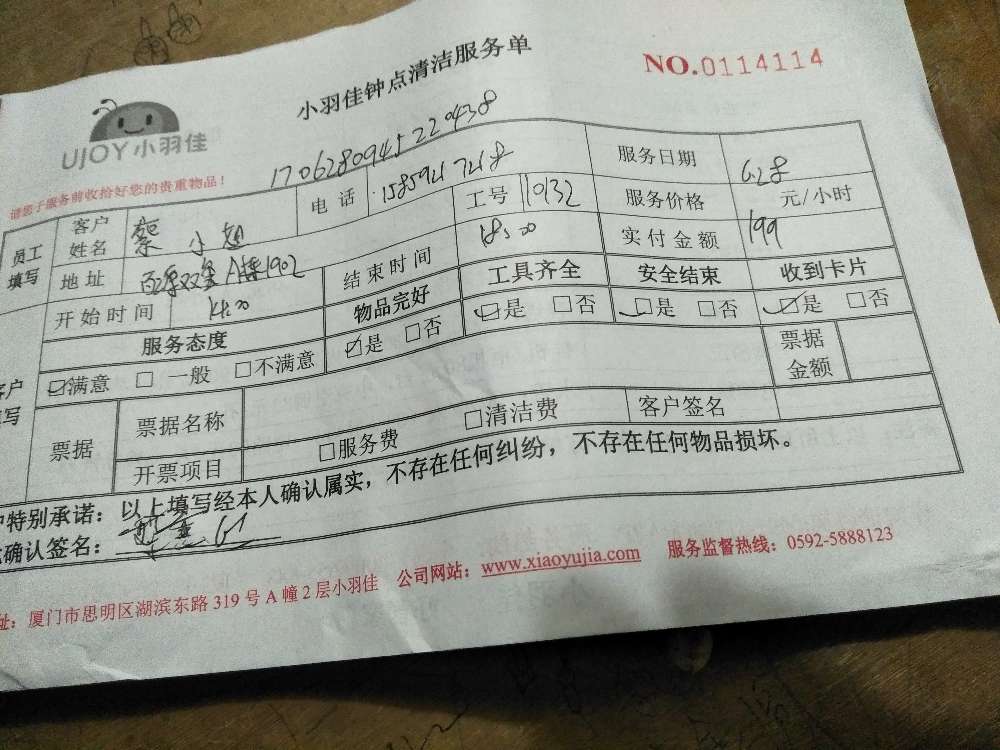 小羽佳钟点清洁服务单
NO.0114114
UJOY小羽佳
请您于服务前收拾好您的贵重物品！
170628094522 0438
员工填写 客户姓名 蔡小姐 电话 15859217218 服务日期 6.28
地址 A栋1902 工号 110132 服务价格 元/小时
开始时间 14:00 结束时间 18:00 实付金额 199
服务态度 物品完好 工具齐全 安全结束 收到卡片
☑满意 □一般 □不满意 ☑是 □否 ☑是 □否 ☑是 □否 ☑是 □否
票据 票据名称 票据金额
开票项目 □服务费 □清洁费 客户签名
特别承诺：以上填写经本人确认属实，不存在任何纠纷，不存在任何物品损坏。
确认签名：
址：厦门市思明区湖滨东路319号A幢2层小羽佳 公司网站：www.xiaoyujia.com 服务监督热线：0592-5888123